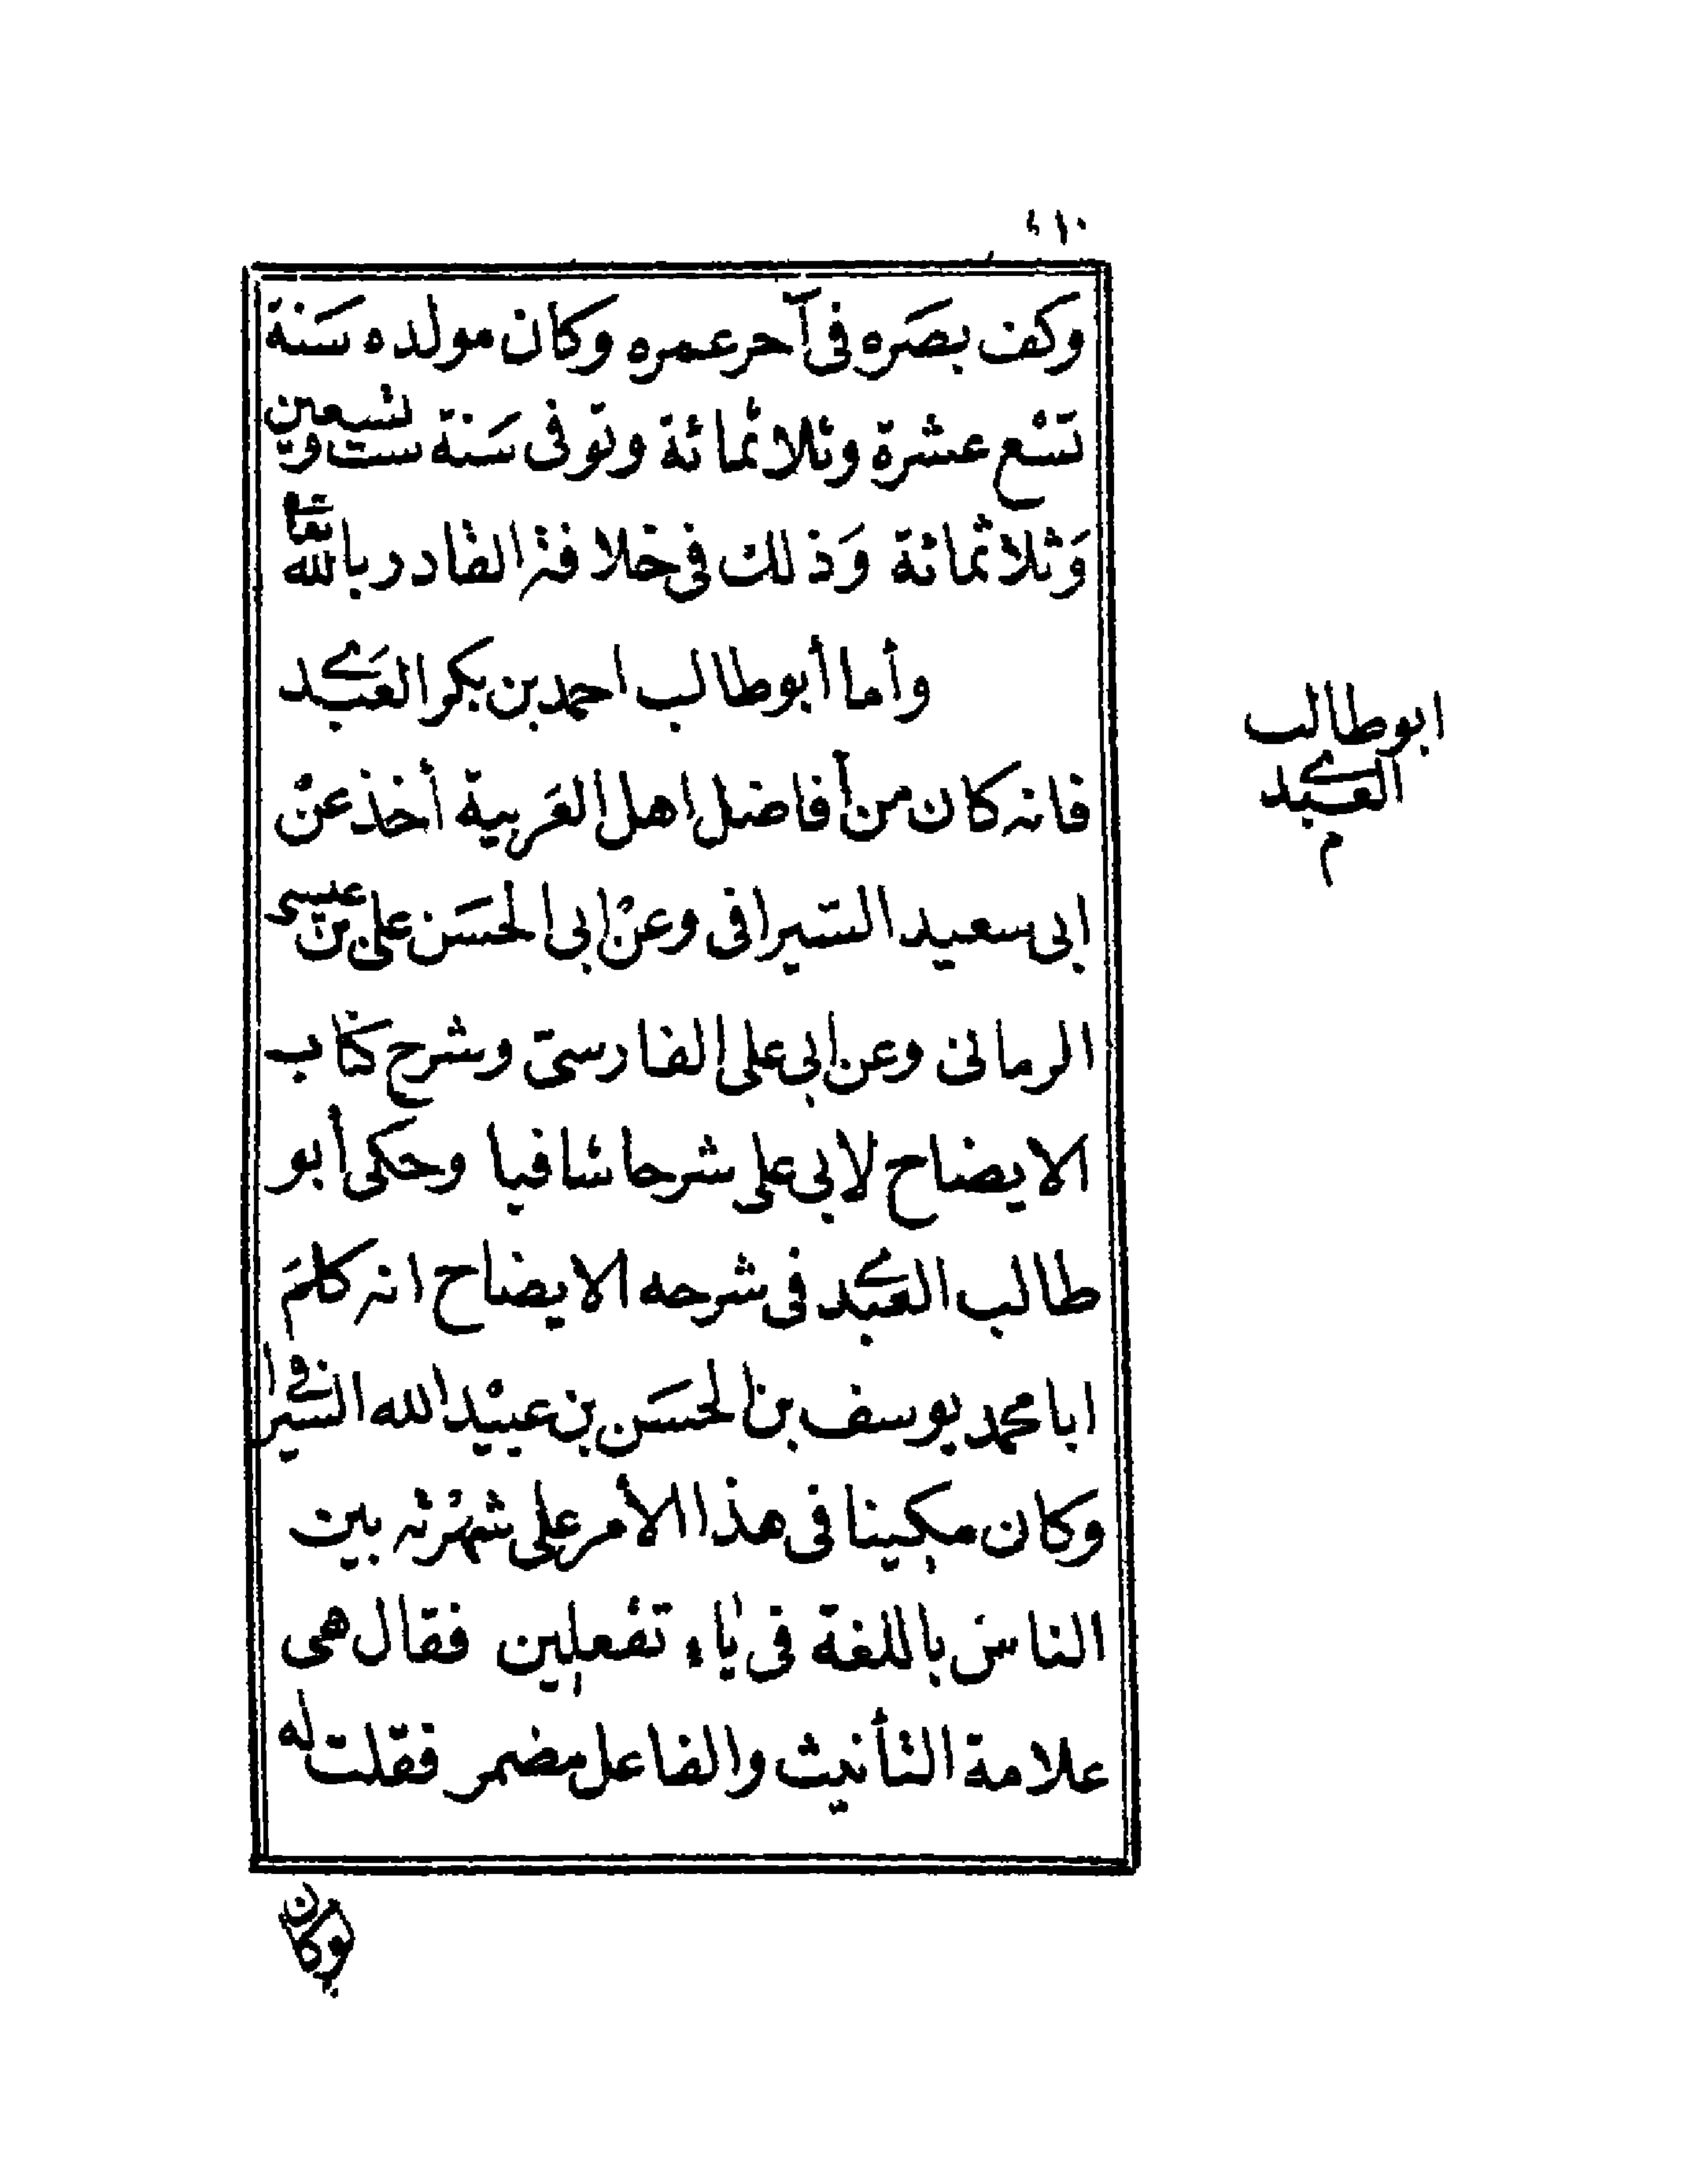 وكف بصَره فى آخر عمره وكان مولده سَنة
تسْع عشرة وثلاثمائة وتوفى سَنة ست وتسعين
وَثلاثمائة وَذلك فى خلافة القادر بالله تعالى
وأما أبو طالب احمد بن بكر العَبدى
ابو طالب
العبدى
م
فانه كان من أفاضل اهل العَربية أخذ عنْ
ابى سعيد السّيرافى وعنْ ابى الحسَن على بن عيسى
الرمانى وعن ابى على الفارسىّ وشرح كتاب
الايضاح لابى على شرحا شافيا وحكى أبو
طالب العَبدى فى شرحه الايضاح انه كلمَ
ابا محمد يوسف بن الحسَن بن عبيْد الله السّيرافى
وكان مكينا فى هذا الأمر على شهْرته بين
الناس باللغة فى ياء تفعلين فقال هى
علامة التأنيث والفاعل مضمر فقلت له
لوكان